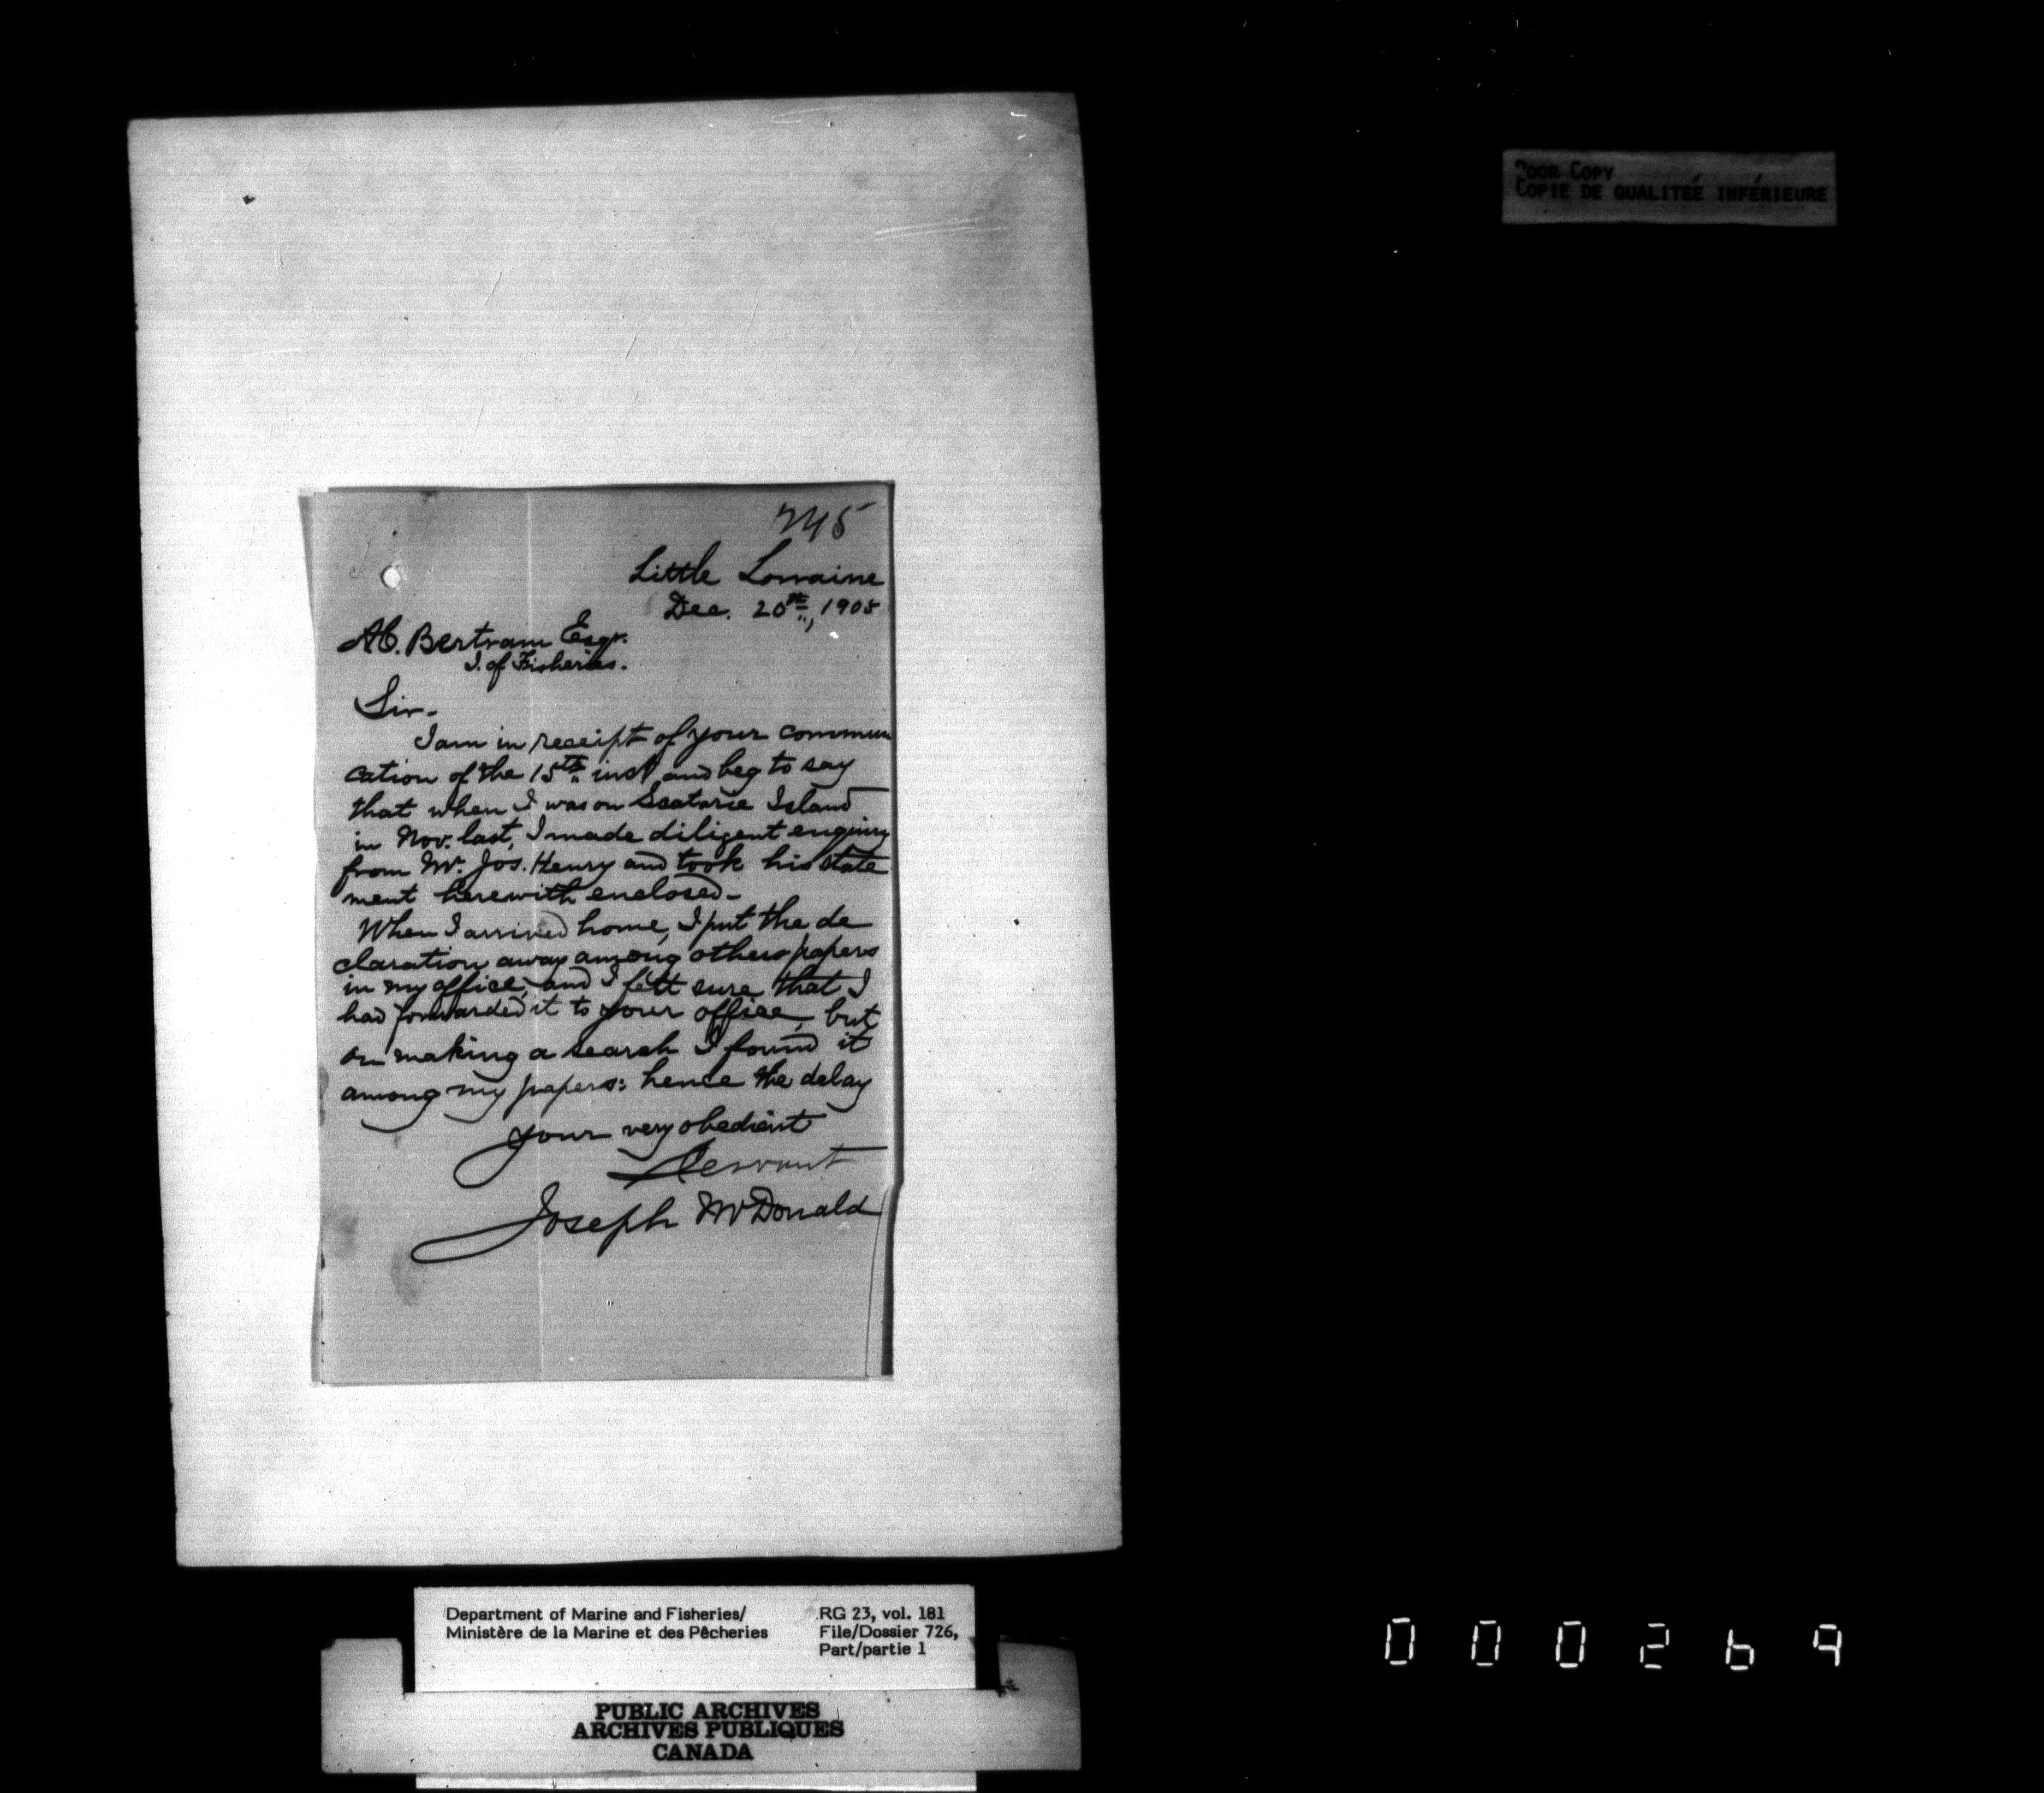 POOR COPY
COPIE DE QUALITEÉ INFÉRIEURE
245
Little Lorraine
Dec. 20th, 1905
A.C. Bertram Esqr.
I. of Fisheries.
Sir-
I am in receipt of your commun
cation of the 15th inst and beg to say
that when I was on Scatarie Island
in Nov. last, I made diligent enquiry
from Mr. Jos. Henry and took his state
ment herewith enclosed-
When I arrived home, I put the de
claration away among others papers
in my office, and I felt sure that I
had forwarded it to your office, but
on making a search I found it
among my papers: hence the delay
your very obedient
Servant
Joseph McDonald
Department of Marine and Fisheries/
Ministère de la Marine et des Pêcheries
RG 23, vol. 181
File/Dossier 726,
Part/partie 1
PUBLIC ARCHIVES
ARCHIVES PUBLIQUES
CANADA
000269